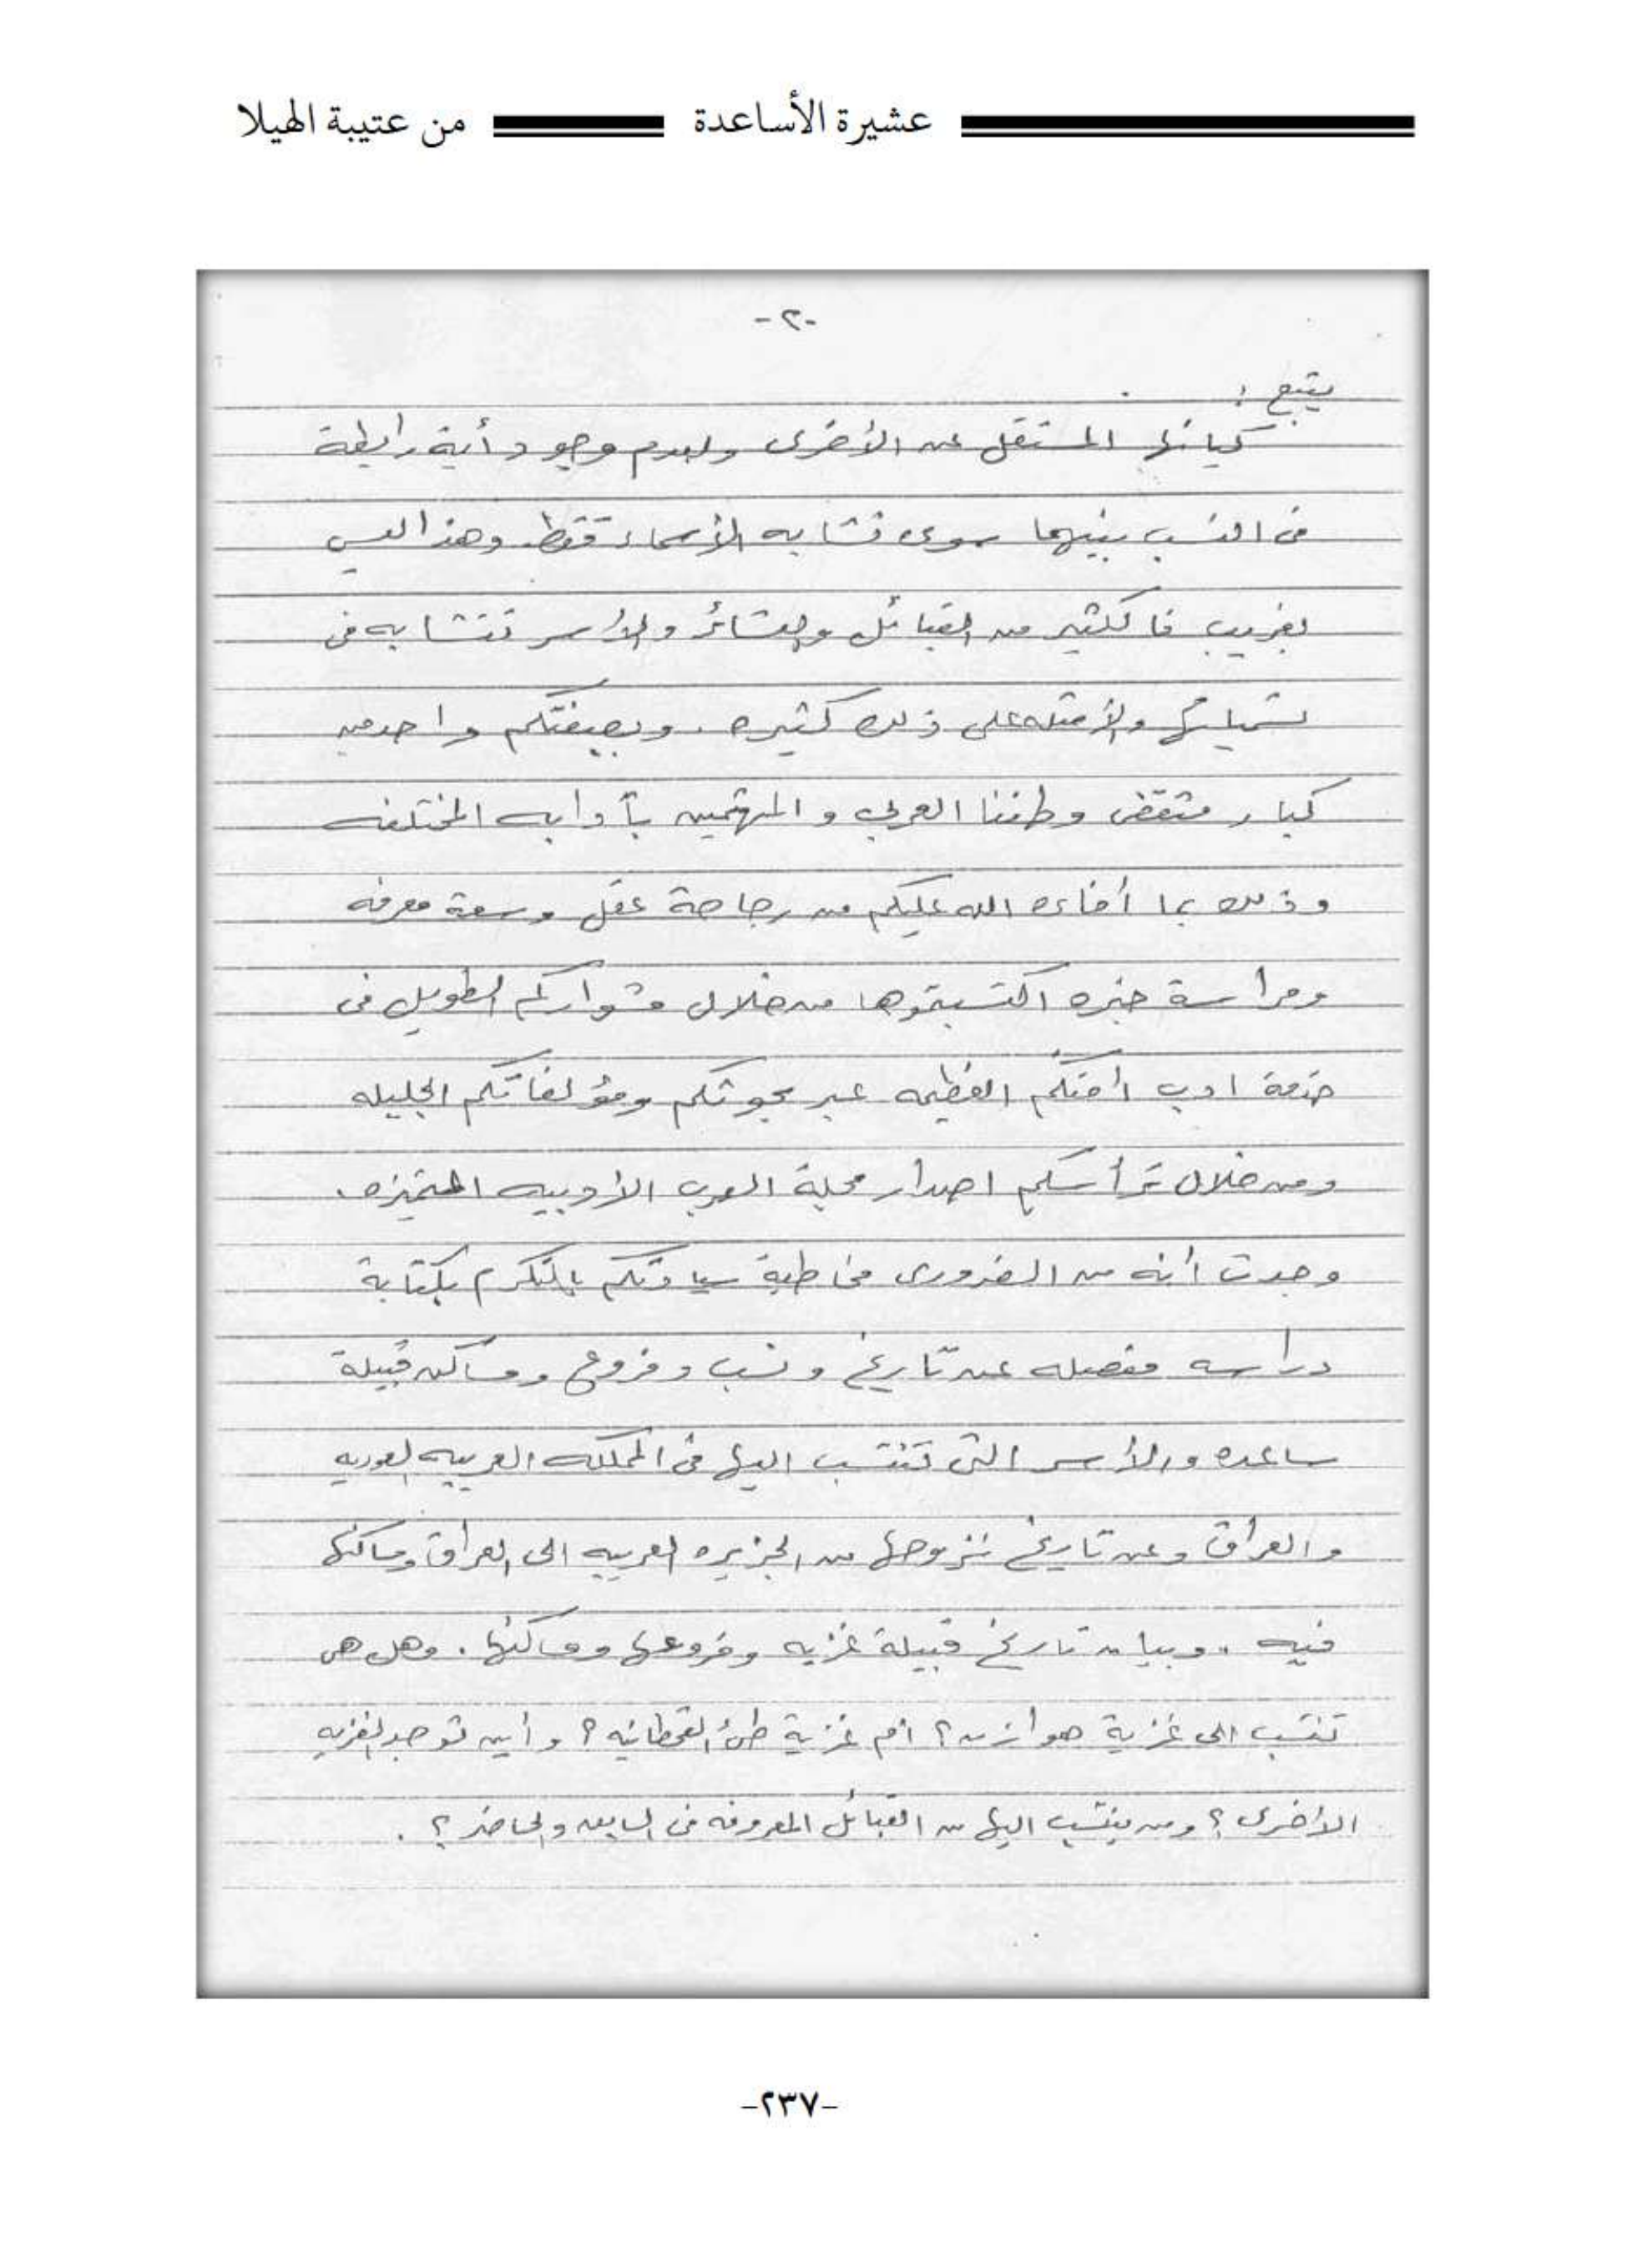 عشيرة الأساعدة من عتيبة الهيلا
-٢-
يتبع :
كيانها المستقل عن الأخرى ولعدم وجود أية رابطة
في النسب بينهما سوى تشابه الأسماء فقط. وهذا ليس
بغريب فالكثير من القبائل والعشائر والأسر تتشابه في
تسمياتها والأمثله على ذلك كثيره . وبصفتكم واحد من
كبار مثقفي وطننا العربي والمهتمين بآدابه المختلفه
وذلك بما أفاءه الله عليكم من رجاحة عقل وسعة معرفه
ومراسة خبره اكتسبتموها من خلال مشواركم الطويل في
خدمة ادب أمتكم العظيمه عبر بحوثكم ومؤلفاتكم الجليله
ومن خلال ترأسكم اصدار مجلة العرب الأدبيه المتميزه .
وجدت أنه من الضروري مخاطبة سيادتكم بالتكرم بكتابة
دراسه مفصله عن تاريخ ونسب وفروع ومساكن قبيلة
ساعده والأسر التي تنتسب اليها في المملكه العربيه السعوديه
والعراق وعن تاريخ نزوحها من الجزيره العربيه الى العراق ومساكنها
فيه .. وبيان تاريخ قبيلة غزيه وفروعها ومساكنها . وهل هي
تنتسب الى غزية هوازن ؟ أم غزية طئ القحطانيه ؟ وأين توجد الغزيه
الأخرى ؟ ومن ينتسب اليها من القبائل المعروفه في السابق والحاضر ؟ .
-٢٣٧-